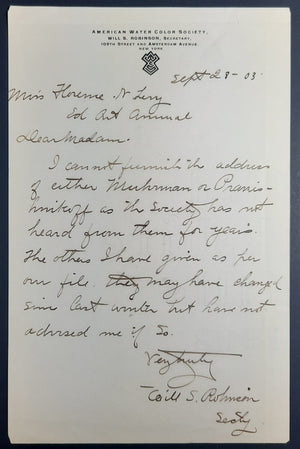 AMERICAN WATER COLOR SOCIETY,
WILL S. ROBINSON, SECRETARY,
109TH STREET AND AMSTERDAM AVENUE,
NEW YORK
Sept 28-03.
Miss Florence N Levy
Ed Art Annual
Dear Madam:
I cannot furnish the address
of either Muhrman or Pranish-
nikoff as the Society has not
heard from them for years.
The others I have given as per
our file. they may have changed
since last winter but have not
advised me if so.
Very truly
Will S. Robinson
Secty.